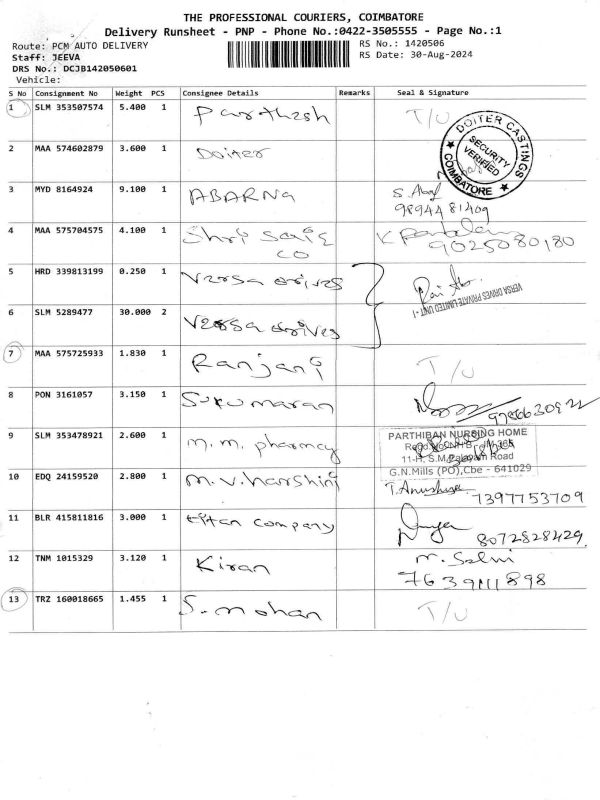 THE PROFESSIONAL COURIERS, COIMBATORE
Delivery Runsheet - PNP - Phone No.:0422-3505555 - Page No.:1
Route: PCM AUTO DELIVERY RS No.: 1420506
Staff: JEEVA RS Date: 30-Aug-2024
DRS No.: DCJB142050601
Vehicle:
S No Consignment No Weight PCS Consignee Details Remarks Seal & Signature
1 SLM 353507574 5.400 1 Parthesh T/U
2 MAA 574602879 3.600 1 Doiter DOITER CASTINGS SECURITY VERIFIED COIMBATORE
3 MYD 8164924 9.100 1 ABARNA S.
9894481409
4 MAA 575704575 4.100 1 Shri K
co 9025080180
5 HRD 339813199 0.250 1 Versa drives
VERSA DRIVES PRIVATE LIMITED UNIT - I
6 SLM 5289477 30.000 2 Versa drives
7 MAA 575725933 1.830 1 Ranjani T/U
8 PON 3161057 3.150 1 Sukumaran
9 SLM 353478921 2.600 1 m.m. pharmacy PARTHIBAN NURSING HOME
11-H, S.M.Palayam Road
G.N.Mills (PO),Cbe - 641029
10 EDQ 24159520 2.800 1 m.v.harshini T.
7397753709
11 BLR 415811816 3.000 1 titan company
8072828429
12 TNM 1015329 3.120 1 Kiran m. Selvi
13 TRZ 160018665 1.455 1 S. mohan T/U